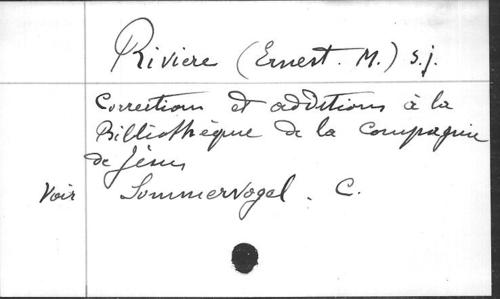 Riviere (Ernest. M.) s.j.
Corrections et additions à la
Bibliothèque de la Compagnie
de Jésus
Voir Sommervogel. C.